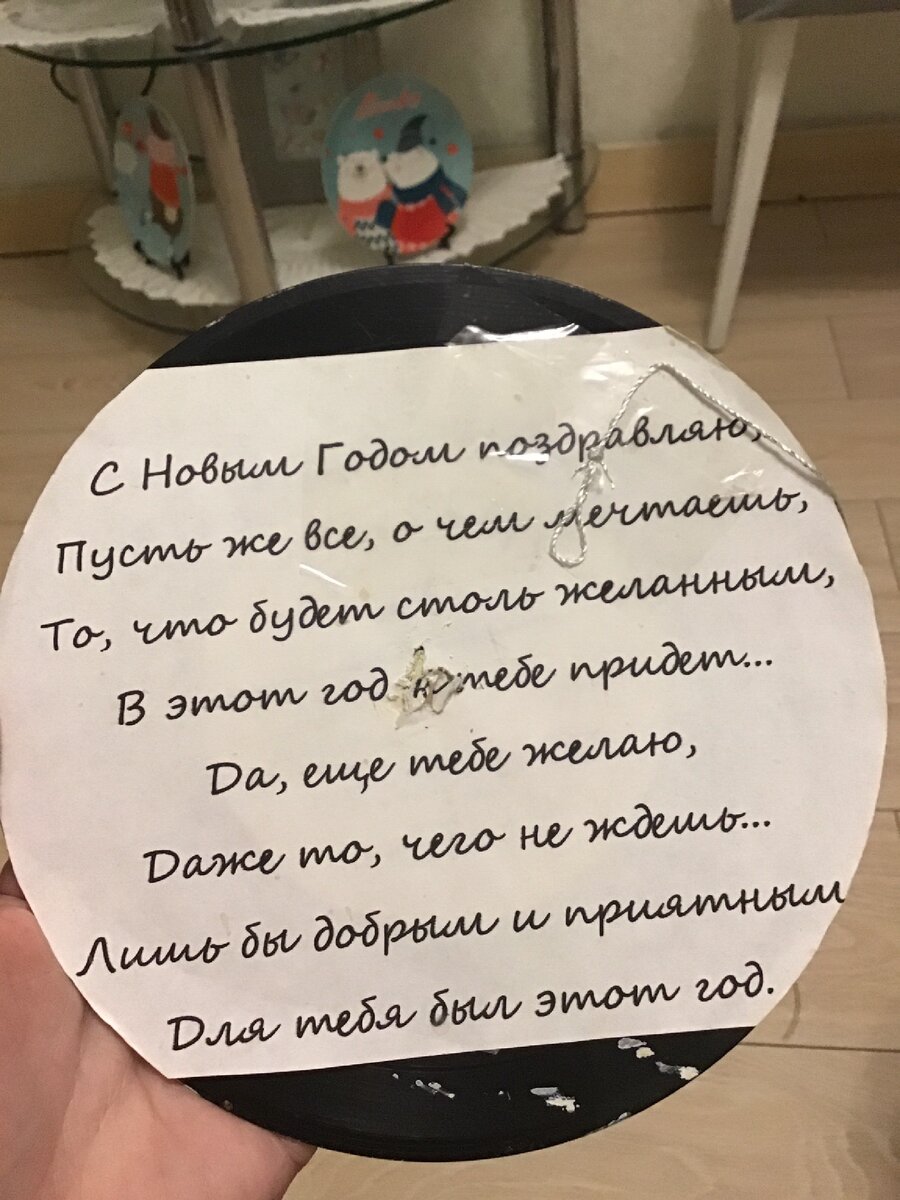 С Новым Годом поздравляю,
Пусть же все, о чем мечтаешь,
То, что будет столь желанным,
В этот год к тебе придет...
Да, еще тебе желаю,
Даже то, чего не ждешь...
Лишь бы добрым и приятным
Для тебя был этот год.